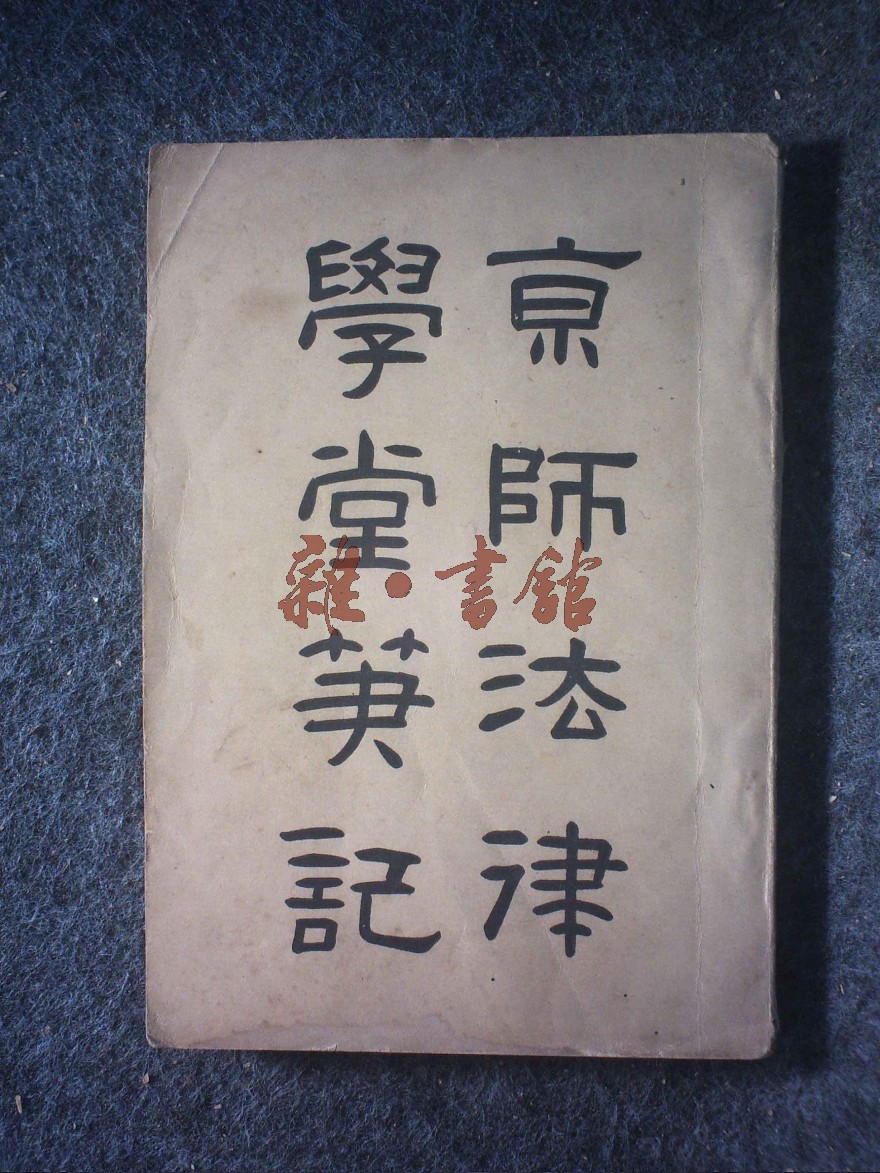 京師法律
學堂筆記
雜·書館